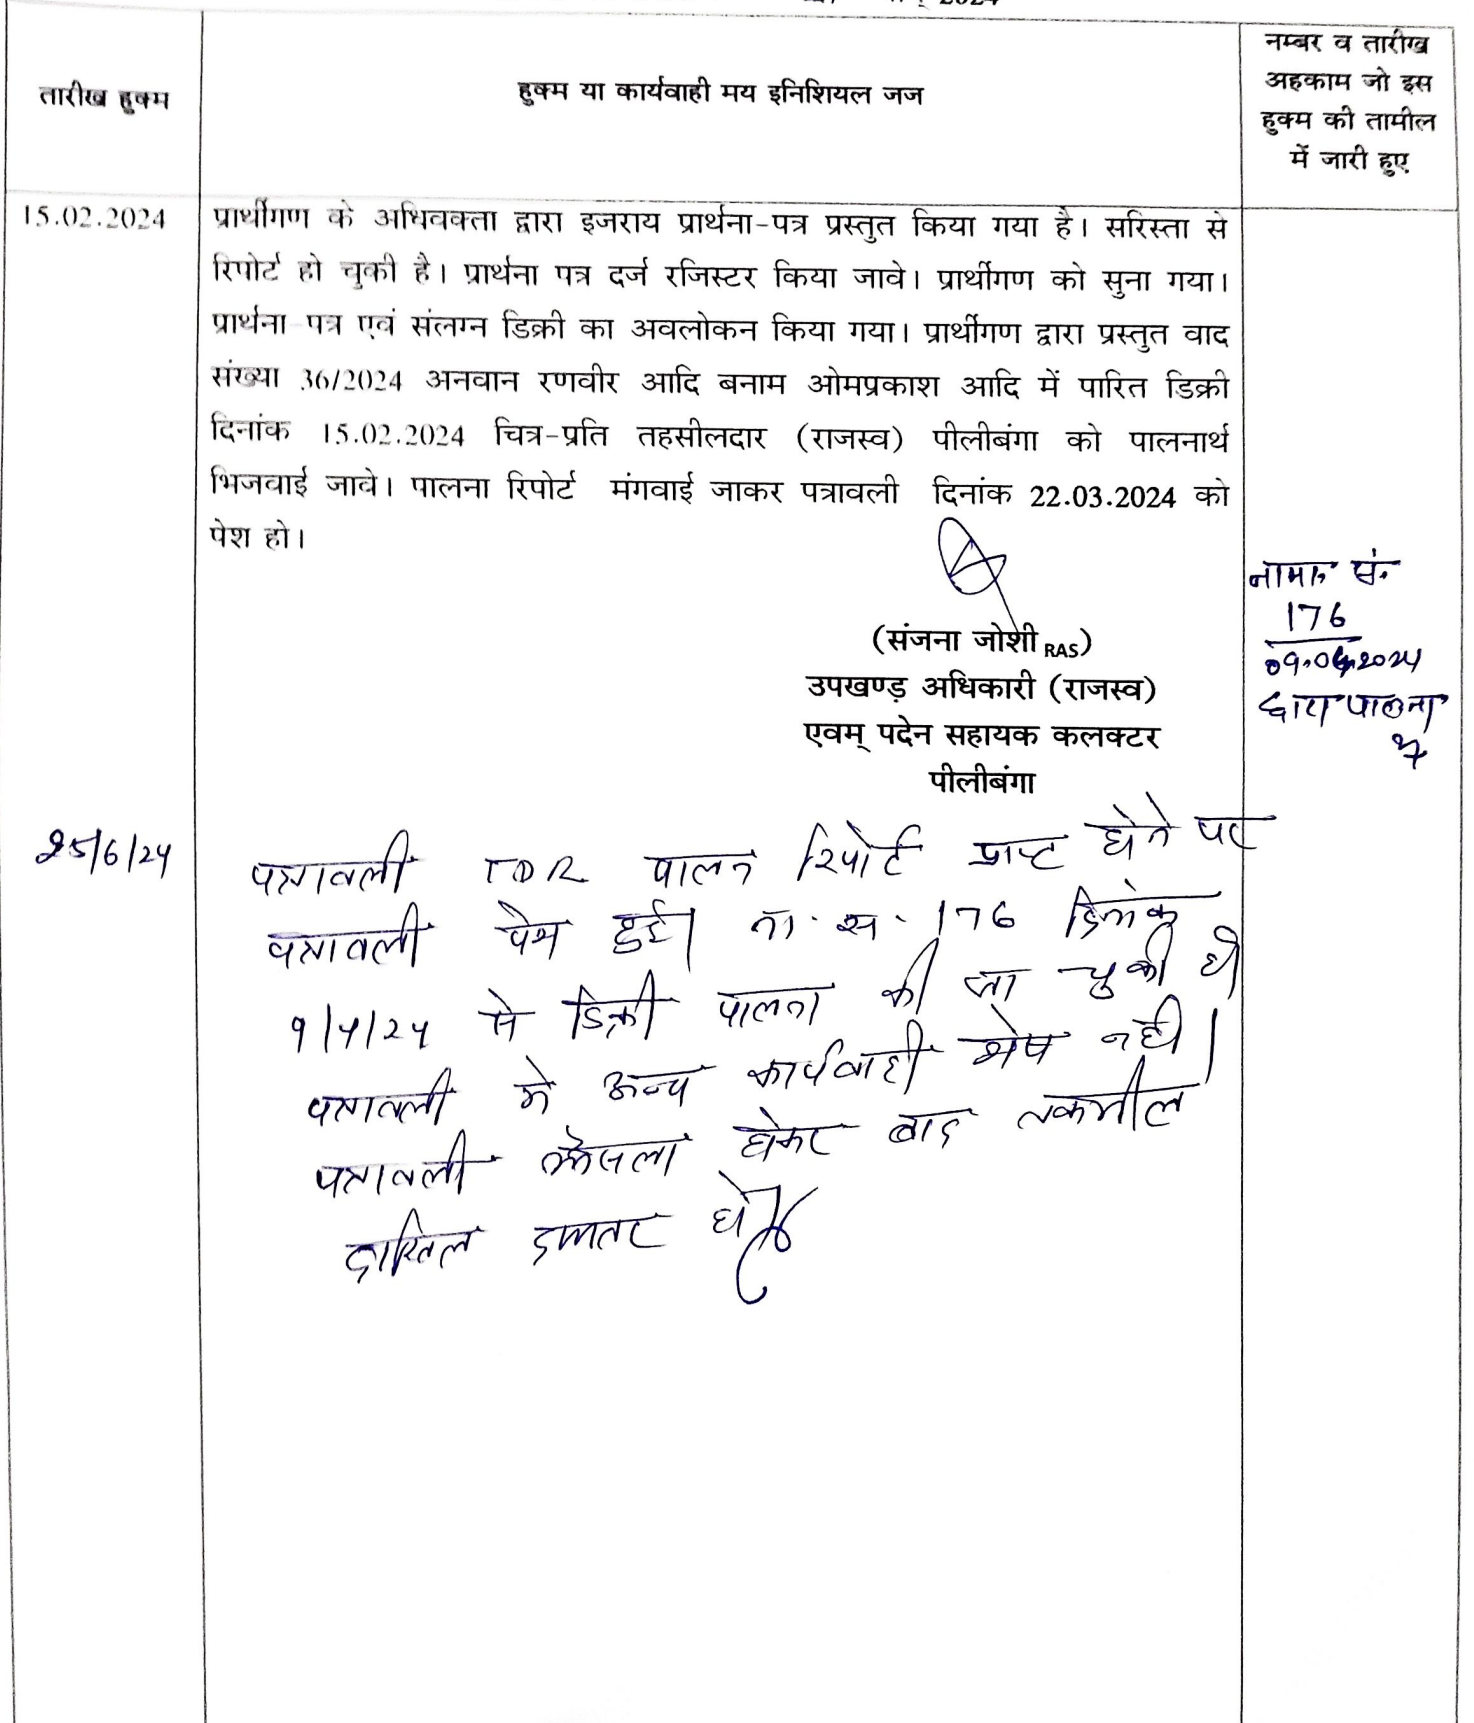 2024
तारीख हुक्म
हुक्म या कार्यवाही मय इनिशियल जज
नम्बर व तारीख
अहकाम जो इस
हुक्म की तामील
में जारी हुए
15.02.2024
प्रार्थीगण के अधिवक्ता द्वारा इजराय प्रार्थना-पत्र प्रस्तुत किया गया है। सरिस्ता से
रिपोर्ट हो चुकी है। प्रार्थना पत्र दर्ज रजिस्टर किया जावे। प्रार्थीगण को सुना गया।
प्रार्थना पत्र एवं संलग्न डिक्री का अवलोकन किया गया। प्रार्थीगण द्वारा प्रस्तुत वाद
संख्या 36/2024 अनवान रणवीर आदि बनाम ओमप्रकाश आदि में पारित डिक्री
दिनांक 15.02.2024 चित्र-प्रति तहसीलदार (राजस्व) पीलीबंगा को पालनार्थ
भिजवाई जावे। पालना रिपोर्ट मंगवाई जाकर पत्रावली दिनांक 22.03.2024 को
पेश हो।
(संजना जोशी RAS)
उपखण्ड़ अधिकारी (राजस्व)
एवम् पदेन सहायक कलक्टर
पीलीबंगा
नामा. सं.
176
09.04.2024
द्वारा पालना
25/6/24
पत्रावली TDR पालन रिपोर्ट प्राप्त होने पर
पत्रावली पेश हुई। ना. स. 176 दिनांक
9/4/24 से डिक्री पालना की जा चुकी है
पत्रावली मे अन्य कार्यवाही शेष नही।
पत्रावली फैसला होकर बाद तकमील
दाखिल दफ्तर हो